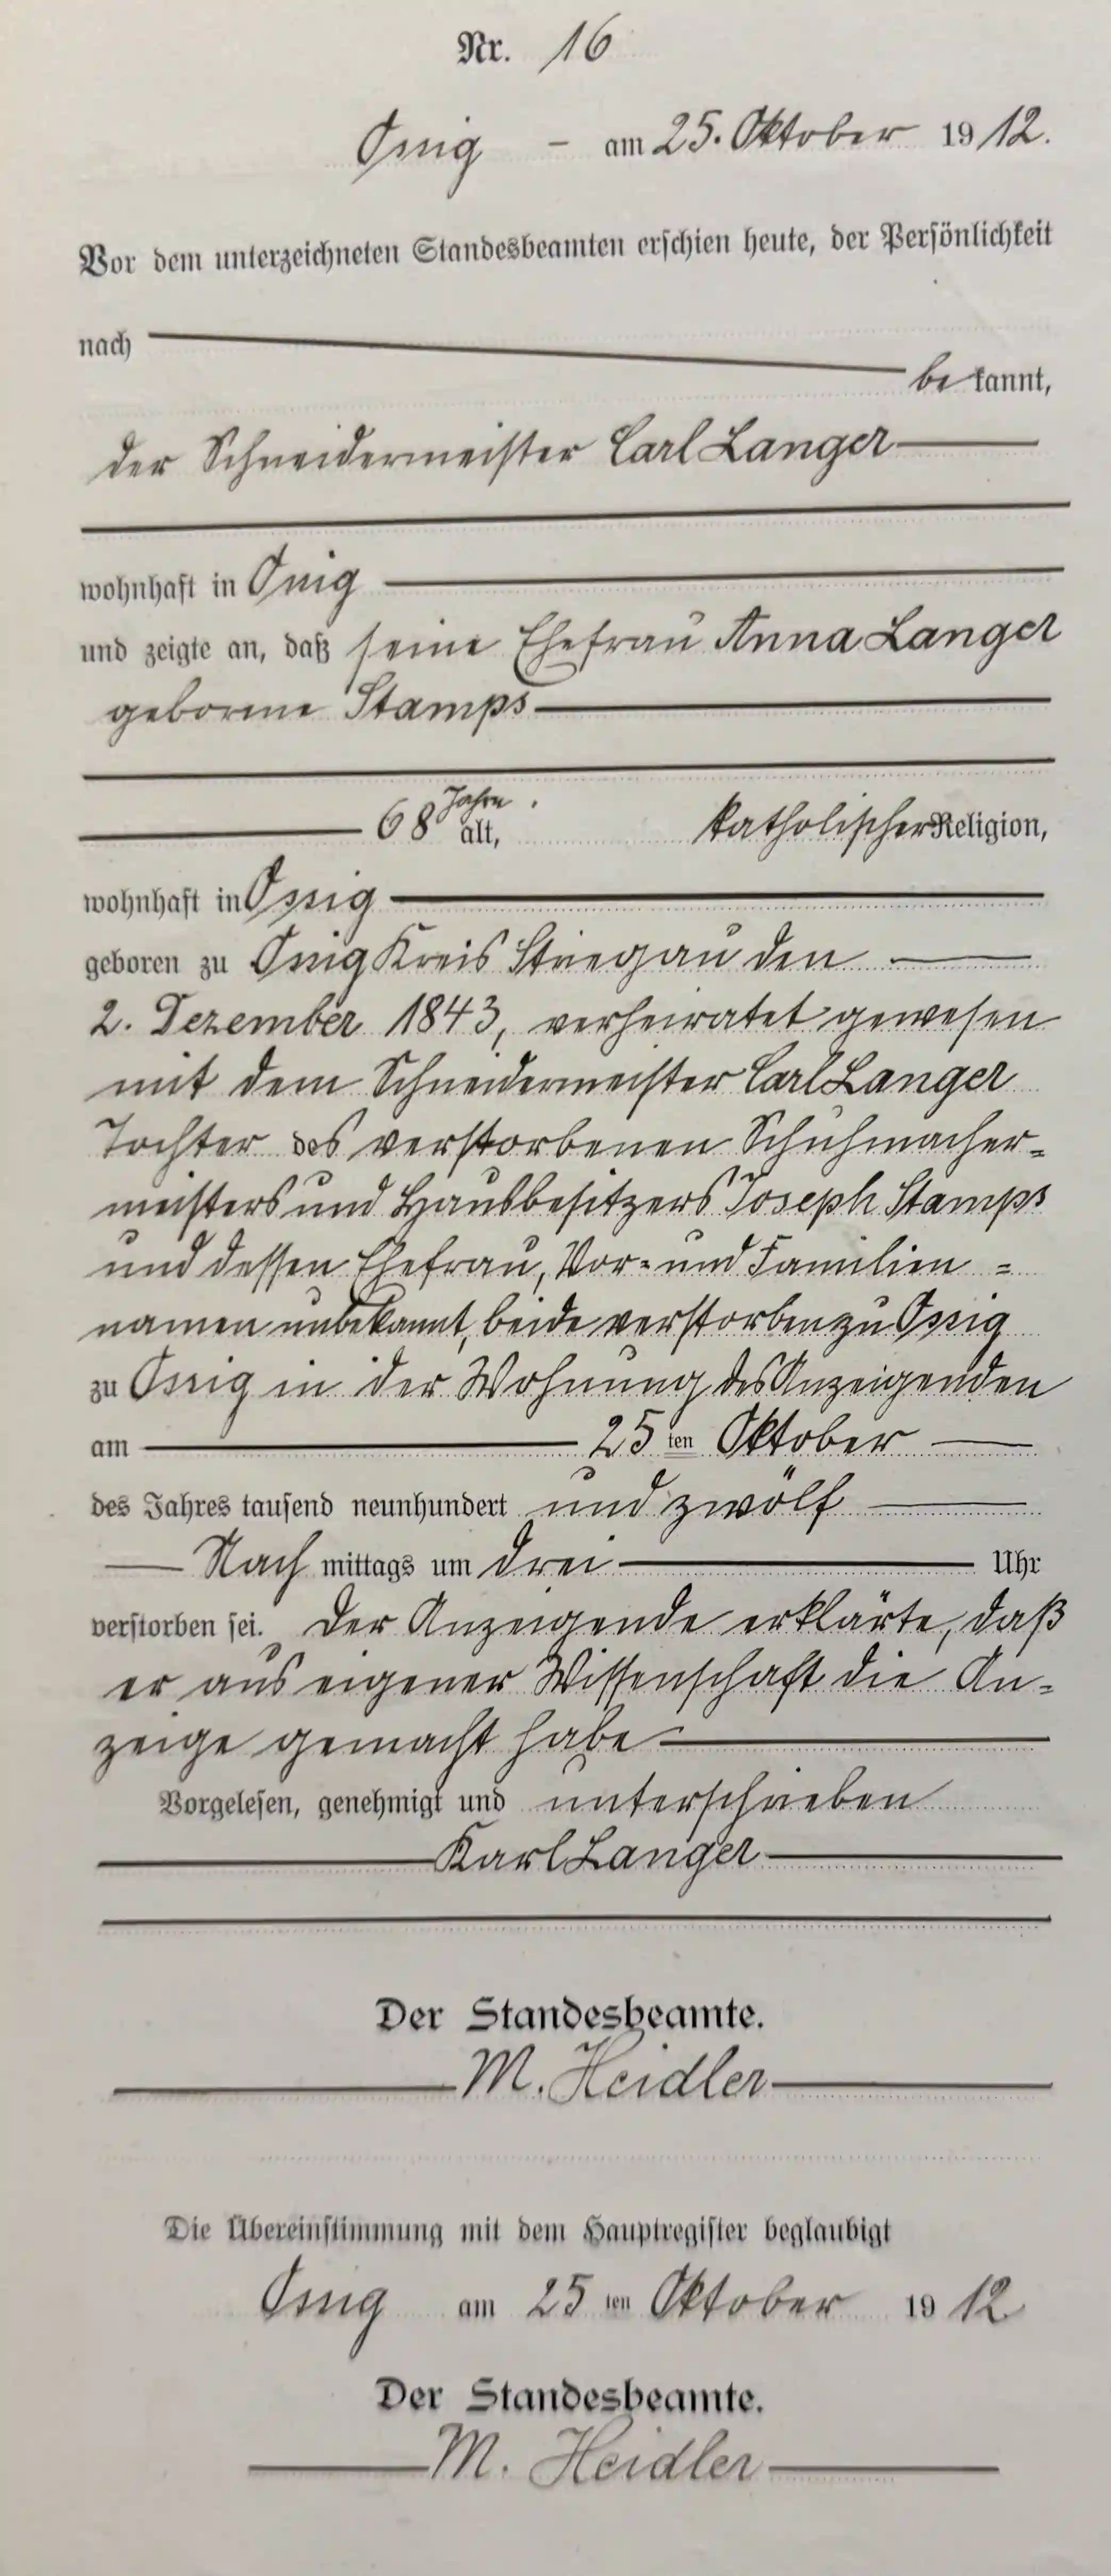 Nr. 16
Ossig - am 25. Oktober 1912.
Vor dem unterzeichneten Standesbeamten erschien heute, der Persönlichkeit
nach
be kannt,
der Schneidermeister Carl Langer
wohnhaft in Ossig
und zeigte an, daß seine Ehefrau Anna Langer
geborene Stamps
68 Jahre alt, katholischer Religion,
wohnhaft in Ossig
geboren zu Ossig Kreis Striegau den
2. Dezember 1843, verheiratet gewesen
mit dem Schneidermeister Carl Langer
Tochter des verstorbenen Schuhmacher-
meisters und Hausbesitzers Joseph Stamps
und dessen Ehefrau, Vor- und Familien-
namen unbekannt, beide verstorben zu Ossig
zu Ossig in der Wohnung des Anzeigenden
am 25 ten Oktober
des Jahres tausend neunhundert und zwölf
Nach mittags um drei Uhr
verstorben sei. Der Anzeigende erklärte, daß
er aus eigener Wissenschaft die An-
zeige gemacht habe
Vorgelesen, genehmigt und unterschrieben
Karl Langer
Der Standesbeamte.
M. Heidler
Die Übereinstimmung mit dem Hauptregister beglaubigt
Ossig am 25 ten Oktober 1912
Der Standesbeamte.
M. Heidler